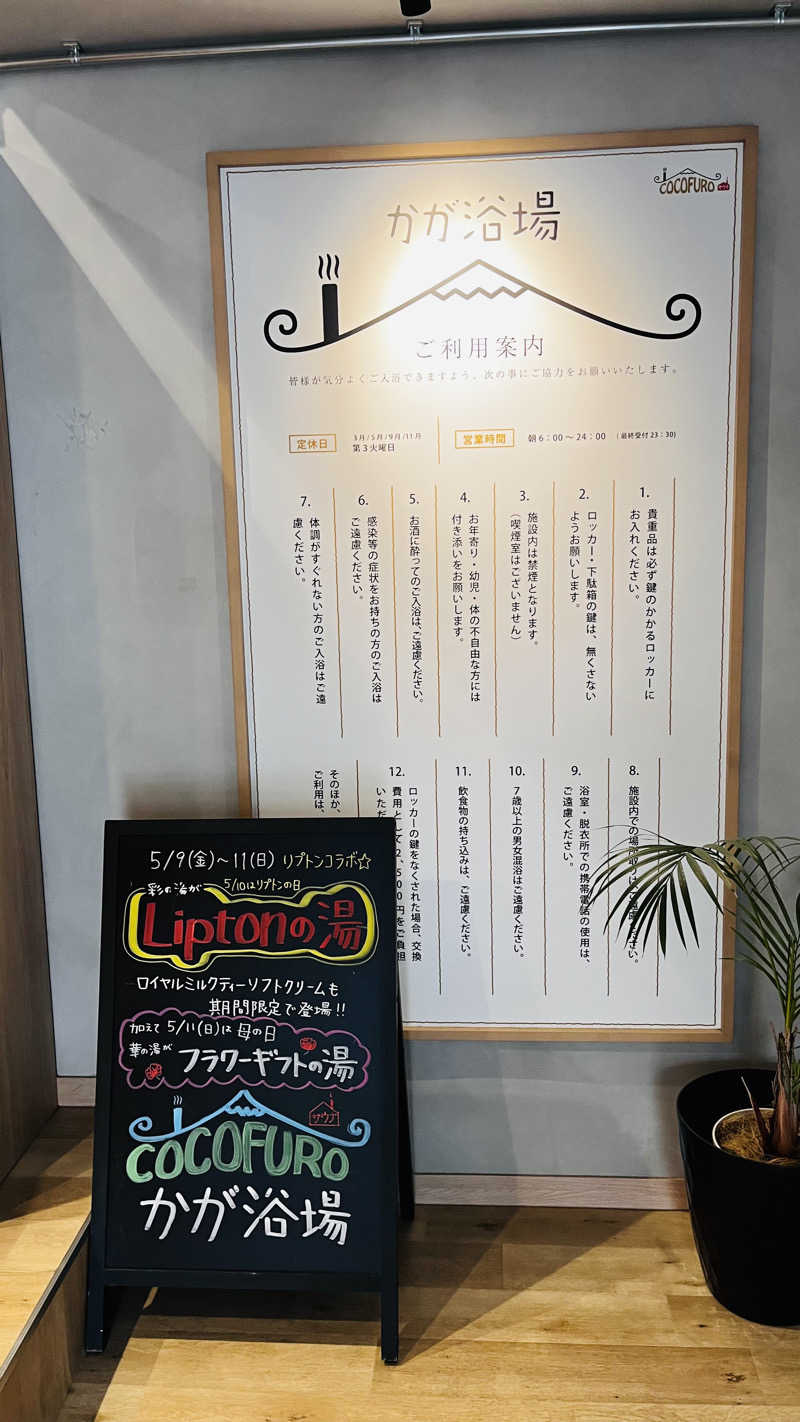 COCOFURO
かが浴場
ご利用案内
皆様が気分よくご入浴できますよう、次の事にご協力をお願いいたします。
定休日
3月/5月/9月/11月
第3火曜日
営業時間
朝6:00〜24:00
(最終受付23:30)
1.
貴重品は必ず鍵のかかるロッカーに
お入れください。
2.
ロッカー・下駄箱の鍵は、無くさない
ようお願いします。
3.
施設内は禁煙となります。
(喫煙室はございません)
4.
お年寄り・幼児・体の不自由な方には
付き添いをお願いします。
5.
お酒に酔ってのご入浴は、ご遠慮ください。
6.
感染等の症状をお持ちの方のご入浴は
ご遠慮ください。
7.
体調がすぐれない方のご入浴はご遠
慮ください。
8.
施設内での場所取りは、ご遠慮ください。
9.
浴室・脱衣所での携帯電話の使用は、
ご遠慮ください。
10.
7歳以上の男女混浴はご遠慮ください。
11.
飲食物の持ち込みは、ご遠慮ください。
12.
ロッカーの鍵をなくされた場合、交換
費用として2,500円をご負担
いただ
そのほか、
ご利用は、
5/9(金)〜11(日) リプトンコラボ☆
彩の湯が 5/10はリプトンの日
Liptonの湯
ロイヤルミルクティーソフトクリームも
期間限定で登場!!
加えて 5/11(日)は 母の日
華の湯が フラワーギフトの湯
サウナ
COCOFURO
かが浴場